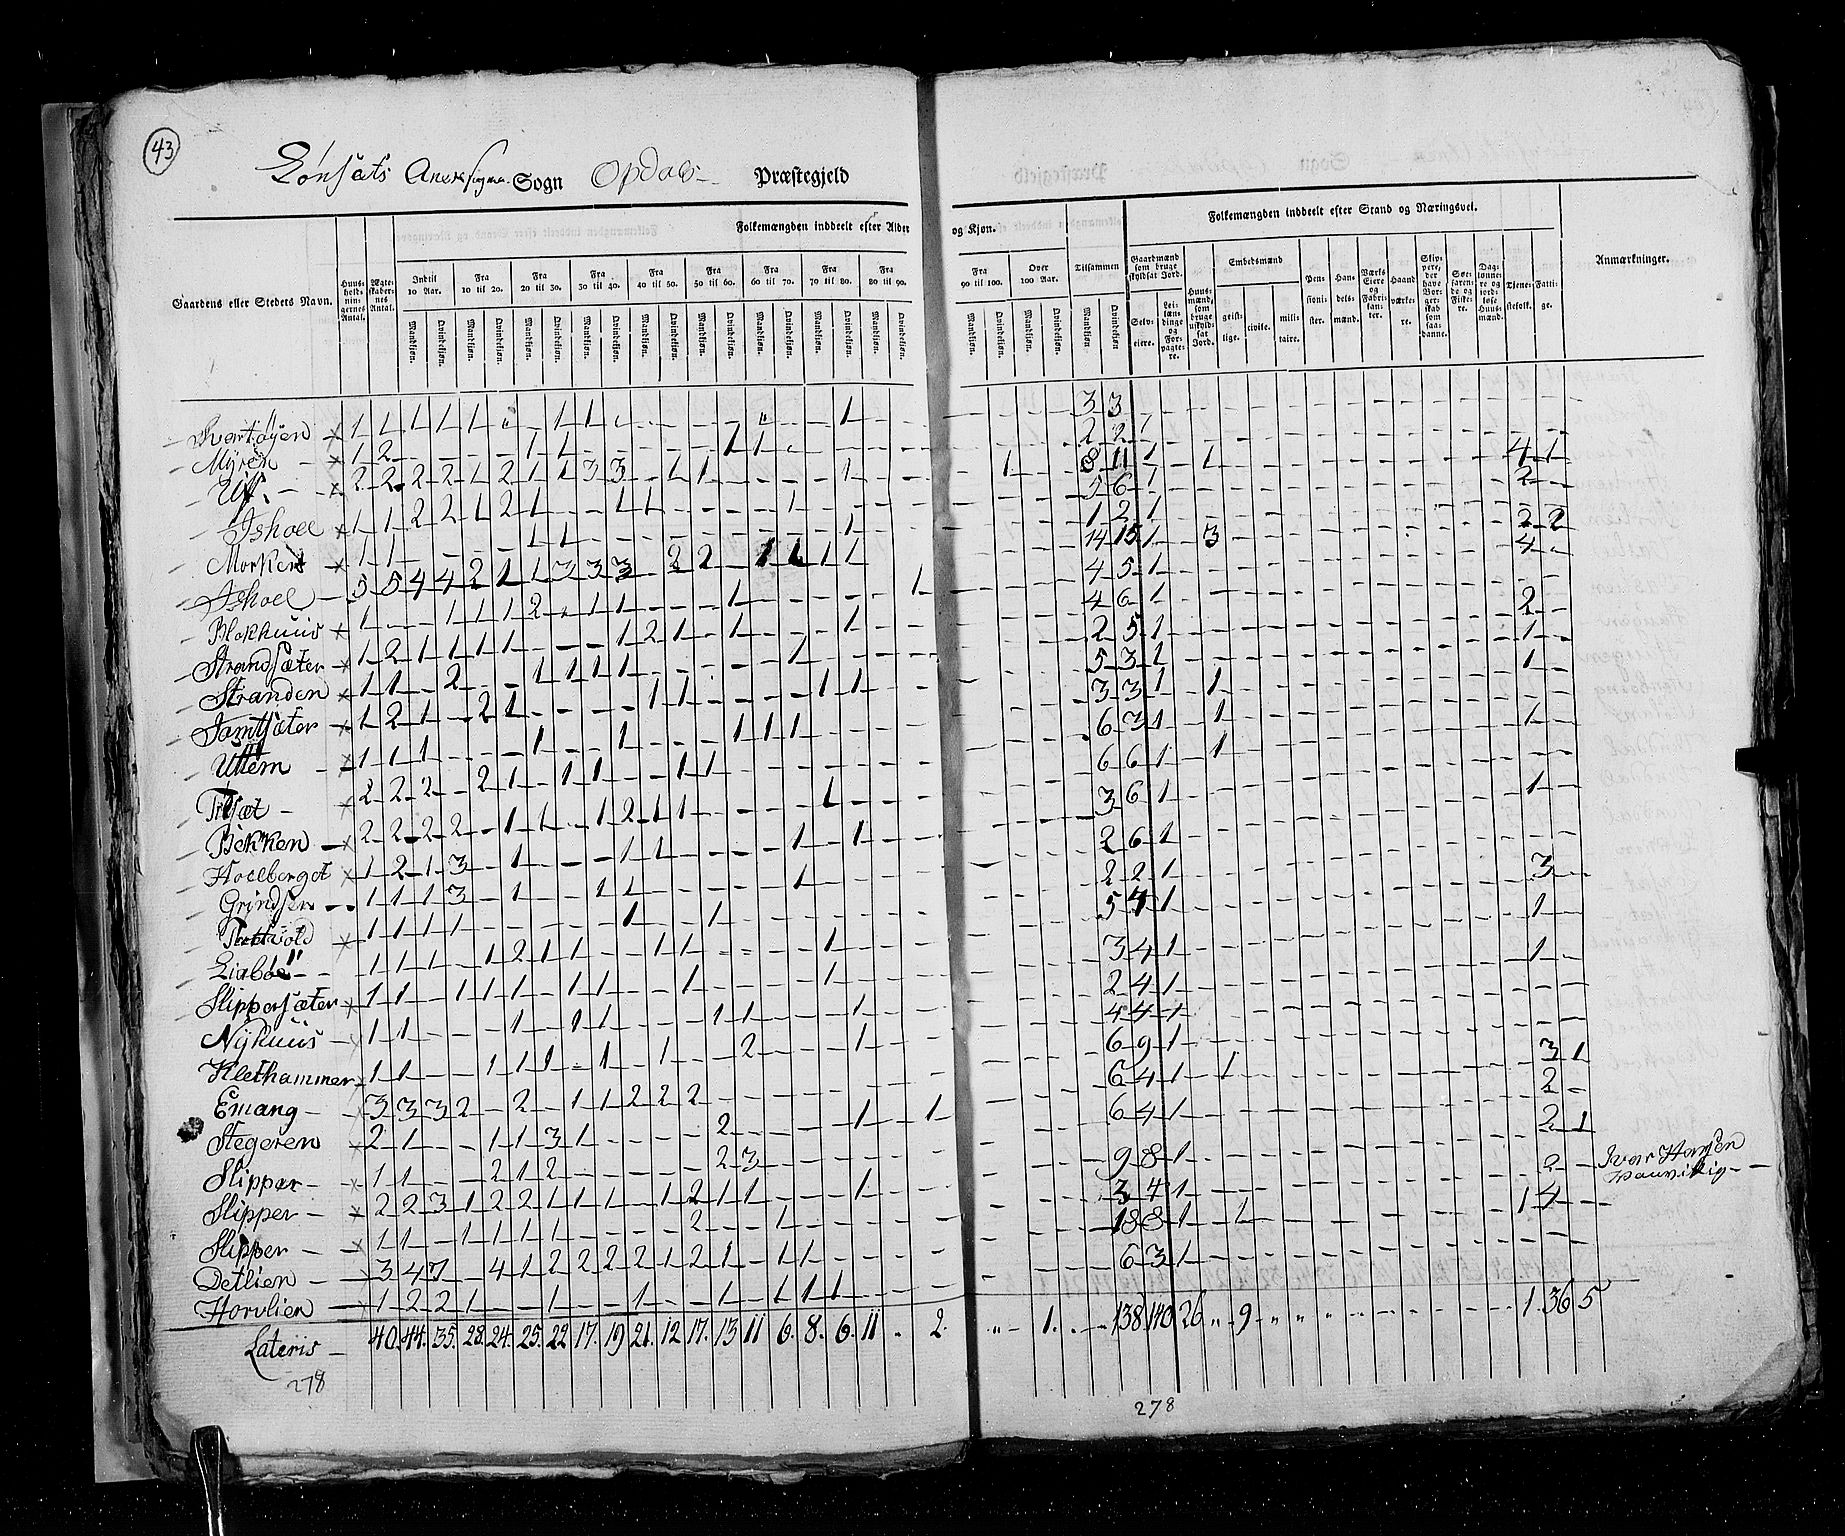 43
Lønsæts Annex Sogn Opdals Præstegjeld
Gaardens eller Stedets Navn.
Huus-holdnin-gernes Antal.
Ægte-skaber-nes Antal.
Folkemængden inddeelt efter Alder og Kjøn.
Indtil 10 Aar.
Fra 10 til 20.
Fra 20 til 30.
Fra 30 til 40.
Fra 40 til 50.
Fra 50 til 60.
Fra 60 til 70.
Fra 70 til 80.
Fra 80 til 90.
Fra 90 til 100.
Over 100 Aar.
Tilsammen
Mandkjøn. Qvindekjøn.
Folkemængden inddeelt efter Stand og Næringsvei.
Gaardmænd som bruge skyldsat Jord.
Selv-eiere.
Lei-læn-dinge og For-pagte-re.
Huus-mænd, som bruge uskyld-sat Jord.
Embedsmænd
geist-lige.
civile.
mili-taire.
Pen-sioni-ster.
Han-dels-mænd.
Værks Eiere og Fabri-kan-ter.
Haand-værke-re.
Skip-pere, der have Bor-ger-skab som saa-danne.
Søe-faren-de og Fiske-re.
Dag-lønne-re og jord-løse Huus-mænd.
Tjene-stefolk.
Fatti-ge.
Anmærkninger.
Svartøyen 1 1 1 1 1 1 1 1 3 3 1
Myren 1 2 1 1 1 1 2 2 1
Uf. 2 2 2 2 1 2 1 1 3 3 1 1 1 1 8 11 1 1 4 1
Ishoel 1 1 2 2 1 2 1 1 1 1 5 6 1 2
Morken 1 1 1 1 1 1 2 1 2 2
Ishoel 5 5 4 4 2 1 1 3 3 3 2 2 1 1 1 1 14 15 1 3 4
Blokhuus 1 1 1 1 2 1 1 1 1 4 5 1
Strandsæter 1 2 1 1 1 1 1 2 1 1 1 4 6 1 2
Stranden 1 1 2 1 1 1 1 1 2 5 1 1
Jamtsæter 1 2 1 2 1 1 1 1 1 5 3 1 1
Uttem 1 1 1 1 1 1 1 1 3 3 1 1
2 2 2 2 1 1 1 1 1 6 3 1 1 1
Bekken 2 2 2 2 1 1 1 2 1 1 1 6 6 1 1
Hoelberget 1 2 1 3 1 1 1 1 1 3 6 1 1
Grindsen 1 1 1 3 1 1 1 1 2 6 1
1 1 1 1 1 1 2 2 1 3
Liabøe 1 1 1 1 2 1 1 1 1 1 5 4 1 1
Slippersæter 1 1 1 1 1 1 1 1 1 3 4 1 1
Nyhuus 1 1 1 1 1 1 1 1 2 4 1
Klethammer 1 1 1 1 1 1 1 2 1 4 4 1
Emang 3 3 3 2 2 1 1 2 2 2 6 9 1 3 1
Stegeren 2 1 1 1 3 1 2 1 1 6 4 1 1 2
Slipper 1 1 2 1 2 2 3 6 4 1 2 1
Slipper 2 2 3 1 2 2 1 1 1 1 2 1 1 1 9 8 1 2 Ivar Hansen
Slipper 1 1 1 1 1 1 2 1 3 4 1
Detlien 3 4 7 4 1 2 2 2 2 1 2 1 1 1 18 8 1 1 1 4
Horvlien 1 2 2 1 1 1 1 1 1 1 6 3 1
Lateris 40. 44. 35. 28. 24. 25. 22. 17. 19 21. 12 17. 13 11 6. 8. 6. 11 2. 1. 138 140 26 9 1 36 5
278
278